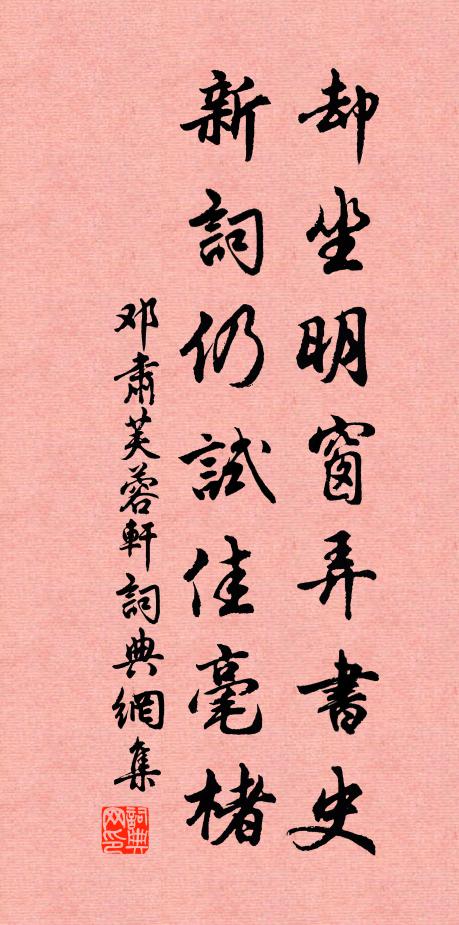 却坐明窗弄書史
新詞仍試佳毫楮
邓肅芙蓉軒詞典網集
詞典网印